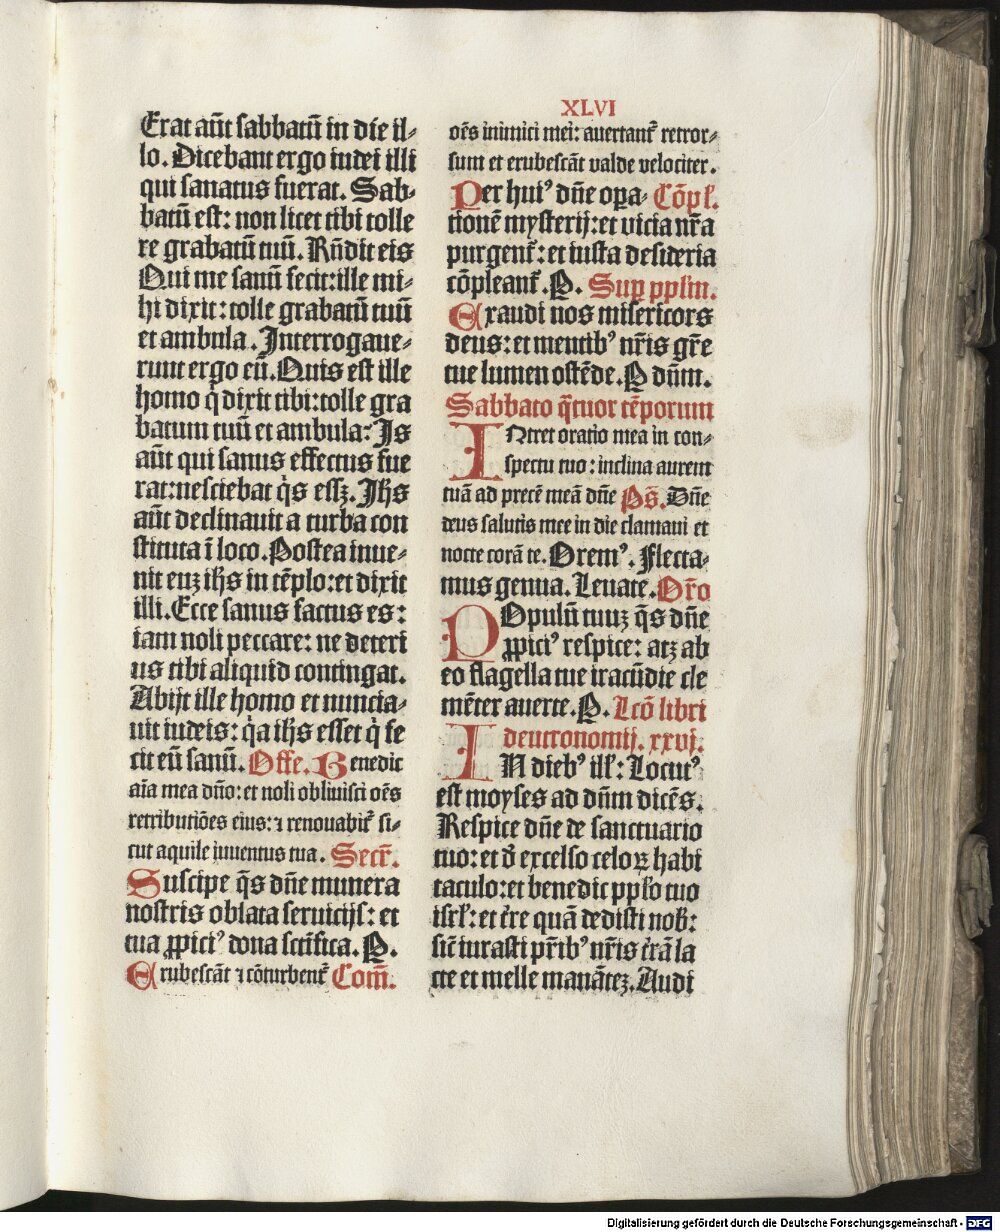 XLVI
Erat aūt sabbatū in die il-
lo. Dicebant ergo iudei illi
qui sanatus fuerat. Sab-
batū est: non licet tibi tolle
re grabatū tuū. Rn̄dit eis
Qui me sanū fecit: ille mi-
hi dixit: tolle grabatū tuū
et ambula. Interrogaue-
runt ergo eū. Quis est ille
homo q̇ dixit tibi: tolle gra
batum tuū et ambula: Is
aūt qui sanus effectus fue
rat: nesciebat q̄s essꝫ. Jhs
aūt declinauit a turba con
stituta ī loco. Postea inue-
nit euꝫ ihs in tēplo: et dixit
illi. Ecce sanus factus es:
iam noli peccare: ne deteri
us tibi aliquid contingat.
Abijt ille homo et nuncia-
uit iudeis: q̇a ihs esset q̇ fe
cit eū sanū. Offe. Benedic
aīa mea dn̄o: et noli obliuisci oēs
retributiōes eius: ⁊ renouabit᷑ si-
cut aquile iuuentus tua. Secr̄.
Suscipe q̄s dn̄e munera
nostris oblata seruicijs: et
tua ꝓpiciꝰ dona sctīfica. P.
Erubescāt ⁊ cōturbent᷑ Com̄.
oēs inimici mei: auertant᷑ retror-
sum et erubescāt valde velociter.
Per huiꝰ dn̄e oꝑa- Cōpl.
tionē mysterij: et vicia nr̄a
purgent᷑: et iusta desideria
cōpleant᷑. P. Sup pplm.
Exaudi nos misericors
deus: et mentibꝰ nr̄is gr̄e
tue lumen ostēde. P dn̄m.
Sabbato q̄tuor tēporum
INtret oratio mea in con-
spectu tuo: inclina aurem
tuā ad precē meā dn̄e Ps̄. Dn̄e
deus salutis mee in die clamaui et
nocte corā te. Oremꝰ. Flecta-
mus genua. Leuate. Or̄o
POpulū tuuꝫ q̄s dn̄e
ꝓpiciꝰ respice: atꝫ ab
eo flagella tue iracūdie cle
mēter auerte. P. Lcō libri
deutronomij. xxvj.
IN diebꝰ ill᷑: Locutꝰ
est moyses ad dn̄m dicēs.
Respice dn̄e de sanctuario
tuo: et d̄ excelso celoꝝ habi
taculo: et benedic pplo tuo
isrl᷑: et t̄re quā dedisti nob᷑:
sic̄ iurasti pr̄ibꝰ nr̄is t̄rā la
cte et melle manāteꝫ. Audi
Digitalisierung gefördert durch die Deutsche Forschungsgemeinschaft - DFG